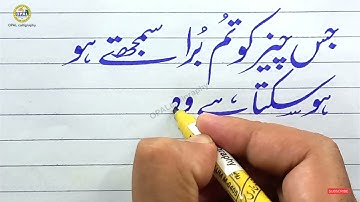 جس چیز کو تم بُرا سمجھتے ہو
ہو سکتا ہے وہ
OPAL calligraphy